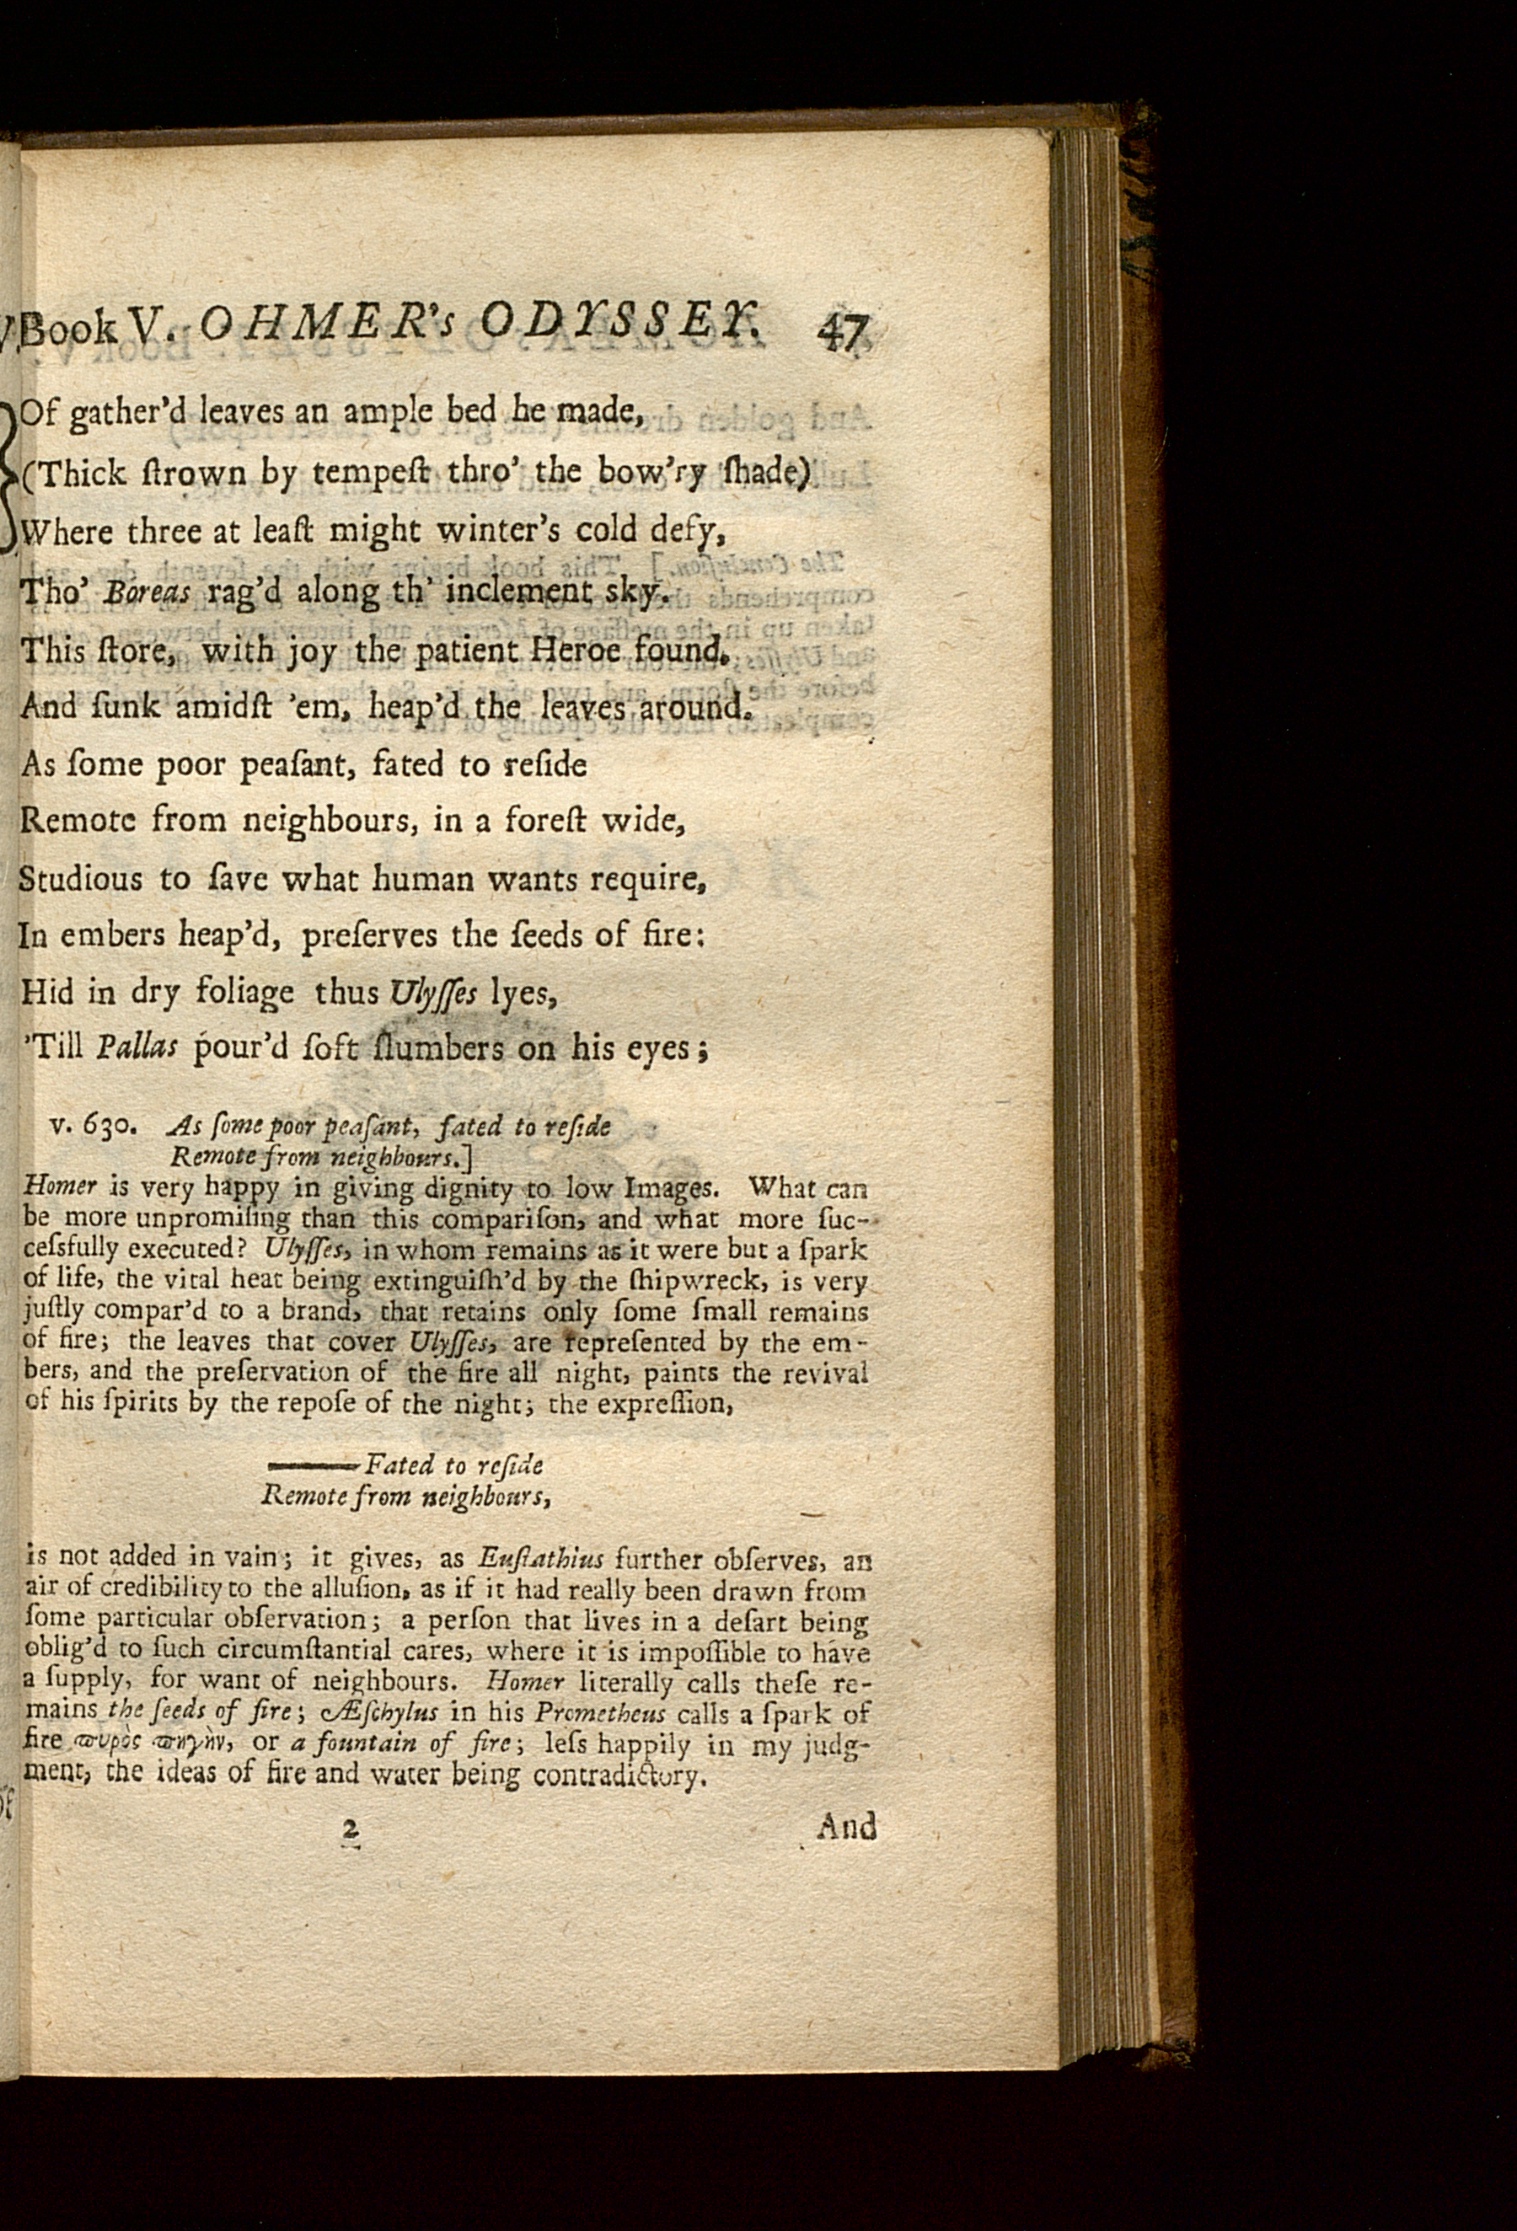 Book V. OHMER's ODYSSEY. 47
Of gather'd leaves an ample bed he made,
(Thick ſtrown by tempeſt thro' the bow'ry ſhade)
Where three at leaſt might winter's cold defy,
Tho' Boreas rag'd along th' inclement sky.
This ſtore, with joy the patient Heroe found,
And ſunk amidſt 'em, heap'd the leaves around.
As ſome poor peaſant, fated to reſide
Remote from neighbours, in a foreſt wide,
Studious to ſave what human wants require,
In embers heap'd, preſerves the ſeeds of fire:
Hid in dry foliage thus Ulyſſes lyes,
'Till Pallas pour'd ſoft ſlumbers on his eyes;
v. 630. As ſome poor peaſant, fated to reſide
Remote from neighbours.]
Homer is very happy in giving dignity to low Images. What can
be more unpromiſing than this compariſon, and what more ſuc-
ceſsfully executed? Ulyſſes, in whom remains as it were but a ſpark
of life, the vital heat being extinguiſh'd by the ſhipwreck, is very
juſtly compar'd to a brand, that retains only ſome ſmall remains
of fire; the leaves that cover Ulyſſes, are repreſented by the em-
bers, and the preſervation of the fire all night, paints the revival
of his ſpirits by the repoſe of the night; the expreſſion,
——Fated to reſide
Remote from neighbours,
is not added in vain; it gives, as Euſtathius further obſerves, an
air of credibility to the alluſion, as if it had really been drawn from
ſome particular obſervation; a perſon that lives in a deſart being
oblig'd to ſuch circumſtantial cares, where it is impoſſible to have
a ſupply, for want of neighbours. Homer literally calls theſe re-
mains the ſeeds of fire; Æſchylus in his Prometheus calls a ſpark of
fire ϖυρὸς ϖηγὴν, or a fountain of fire; leſs happily in my judg-
ment, the ideas of fire and water being contradictory.
2 And